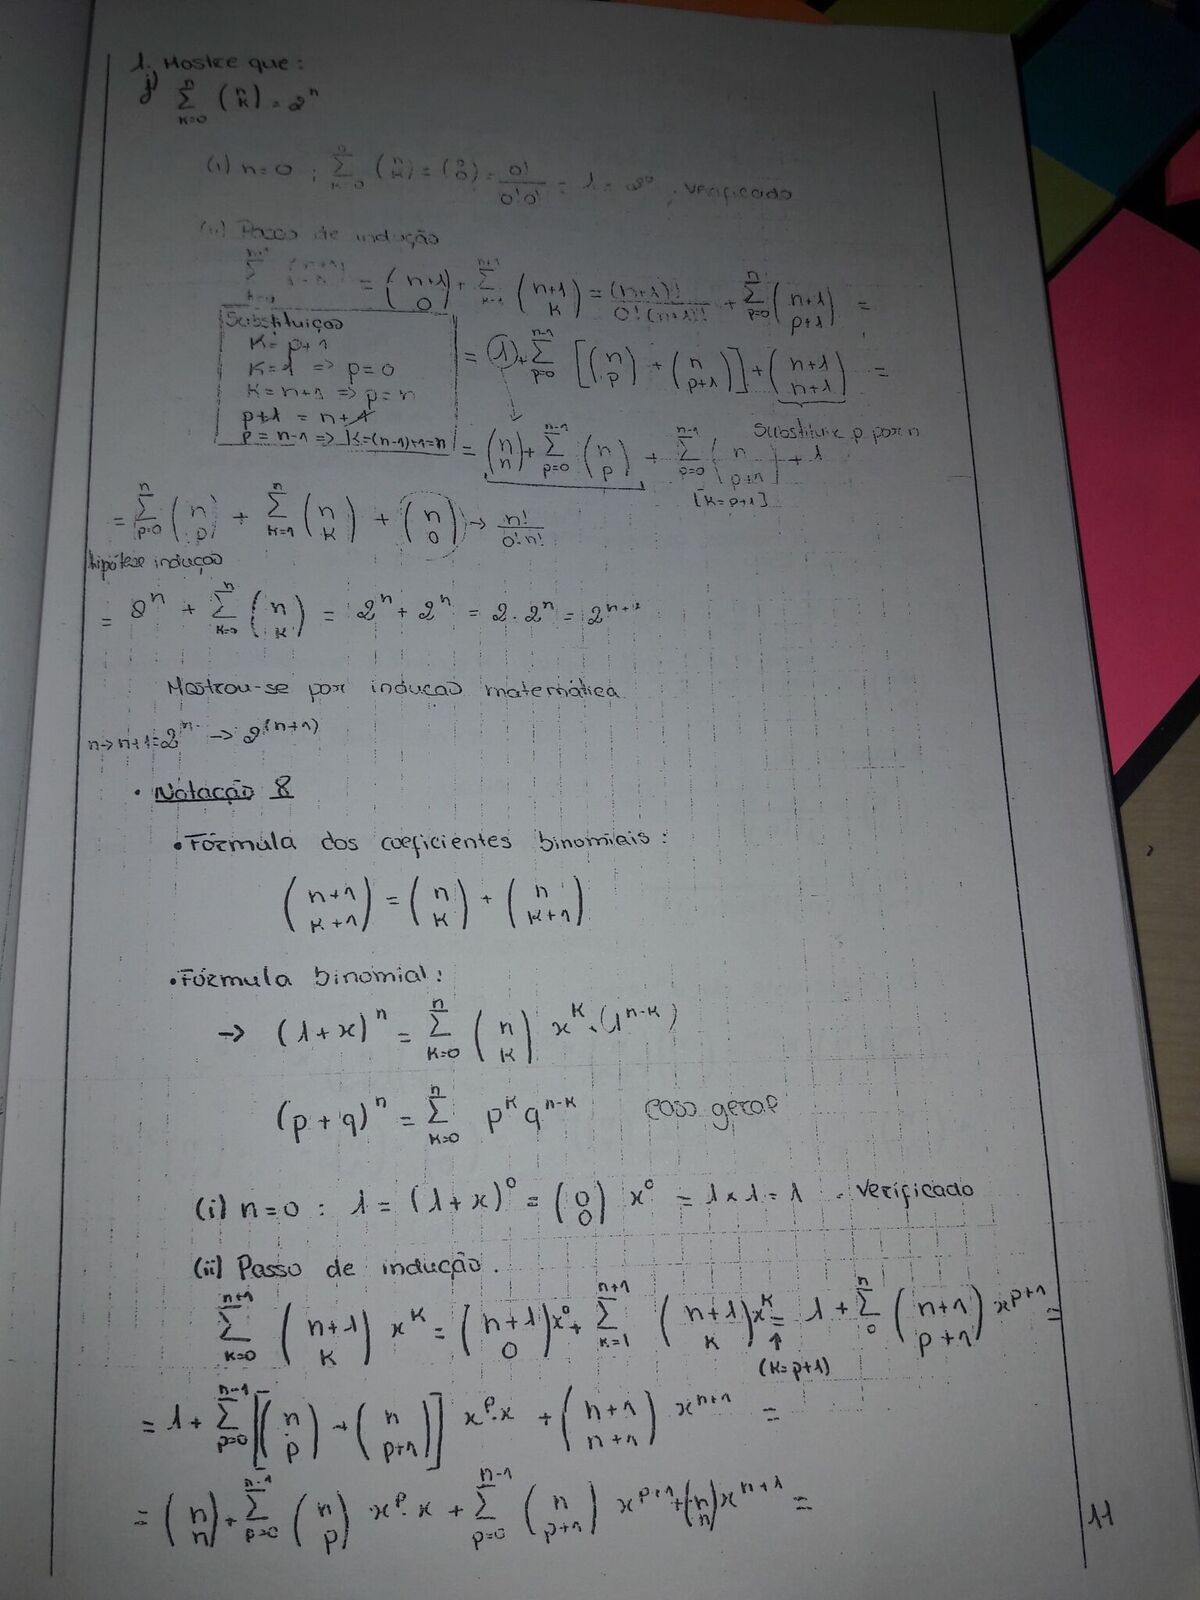 1. Mostre que:
j) \sum_{k=0}^{n} \binom{n}{k} = 2^n
(i) n=0 ; \sum_{k=0}^{0} \binom{n}{k} = \binom{0}{0} = \frac{0!}{0!0!} = 1 = 2^0 . verificado
(ii) Passo de indução
= \binom{n+1}{0} + \sum_{k=1}^{n+1} \binom{n+1}{k} = \frac{(n+1)!}{0!(n+1)!} + \sum_{p=0}^{n} \binom{n+1}{p+1} =
Substituição
k=p+1
k=1 => p=0
k=n+1 => p=n
p+1 = n+1
p=n-1 => k=(n-1)+1=n
= 1 + \sum_{p=0}^{n-1} [\binom{n}{p} + \binom{n}{p+1}] + \binom{n+1}{n+1} =
Substituir p por n
= \binom{n}{n} + \sum_{p=0}^{n-1} \binom{n}{p} + \sum_{p=0}^{n-1} \binom{n}{p+1} + 1
[k=p+1]
= \sum_{p=0}^{n} \binom{n}{p} + \sum_{k=1}^{n} \binom{n}{k} + \binom{n}{0} → \frac{n!}{0!n!}
hipótese indução
= 2^n + \sum_{k=0}^{n} \binom{n}{k} = 2^n + 2^n = 2 . 2^n = 2^{n+1}
Mostrou-se por indução matemática
n→n+1=2^n → 2^{(n+1)}
• Notação 8
• Fórmula dos coeficientes binomiais:
\binom{n+1}{k+1} = \binom{n}{k} + \binom{n}{k+1}
• Fórmula binomial:
→ (1+x)^n = \sum_{k=0}^{n} \binom{n}{k} x^k . (1^{n-k})
(p+q)^n = \sum_{k=0}^{n} p^k q^{n-k} caso geral
(i) n=0 : 1 = (1+x)^0 = \binom{0}{0} x^0 = 1 x 1 = 1 . verificado
(ii) Passo de indução.
\sum_{k=0}^{n+1} \binom{n+1}{k} x^k = \binom{n+1}{0} x^0 + \sum_{k=1}^{n+1} \binom{n+1}{k} x^k = 1 + \sum_{0}^{n} \binom{n+1}{p+1} x^{p+1} =
↑
(k=p+1)
= 1 + \sum_{p=0}^{n-1} [\binom{n}{p} + \binom{n}{p+1}] x^p . x + \binom{n+1}{n+1} x^{n+1} =
= \binom{n}{n} + \sum_{p=0}^{n-1} \binom{n}{p} x^p . x + \sum_{p=0}^{n-1} \binom{n}{p+1} x^{p+1} + \binom{n}{n} x^{n+1} =
11